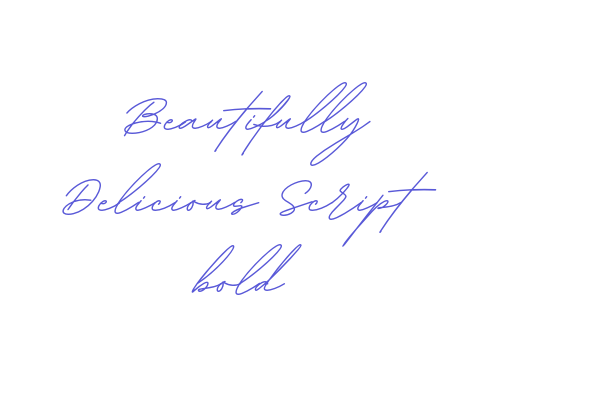 Beautifully
Delicious Script
bold